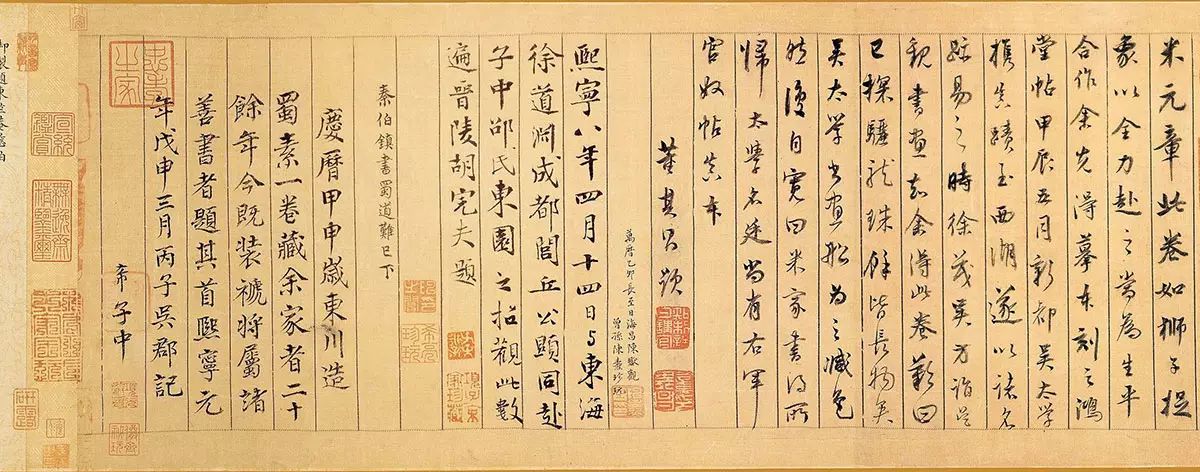 米元章此卷如獅子捉
象以全力赴之當為生平
合作余先得摹本刻之鴻
堂帖甲辰五月新都吳太學
攜真蹟至西湖遂以諸名
跡易之時徐茂吳方詣吳
觀書畫知余得此卷歎曰
已探驪龍珠餘皆長物矣
吳太學書畫船為之減色
然後自寬曰米家書得所
歸太學名廷尚有右軍
官奴帖真本
董其昌題
萬曆乙卯長至日海昌陳瓛觀
曾孫陳
熙寧八年四月十四日与東海
徐道淵成都閭丘公顯同赴
子中邵氏東園之招觀此數
遍晉陵胡完夫題
秦伯鎮書蜀道難已下
慶曆甲申歲東川造
蜀素一卷藏余家者二十
餘年今既裝褫將屬諸
善書者題其首熙寧元
年戊申三月丙子吳郡記
子中
宣統鑒賞
無逸齋精鑒璽
研露